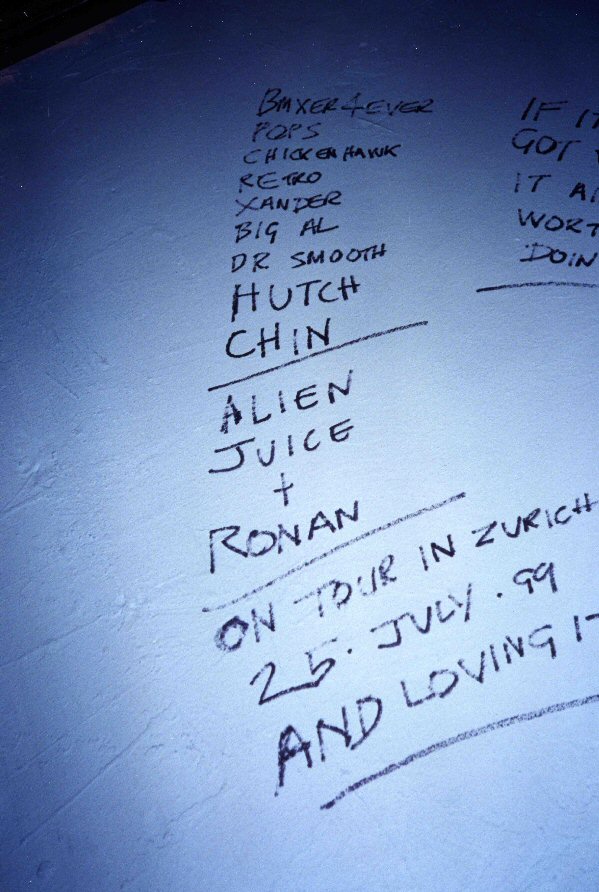 BMXER4EVER
POPS
CHICKENHAWK
RETRO
XANDER
BIG AL
DR SMOOTH
HUTCH
CHIN
ALIEN
JUICE
+
RONAN
ON TOUR IN ZURICH
25. JULY. 99
AND LOVING IT
IF IT
GOT
IT AI
WORT
DOIN